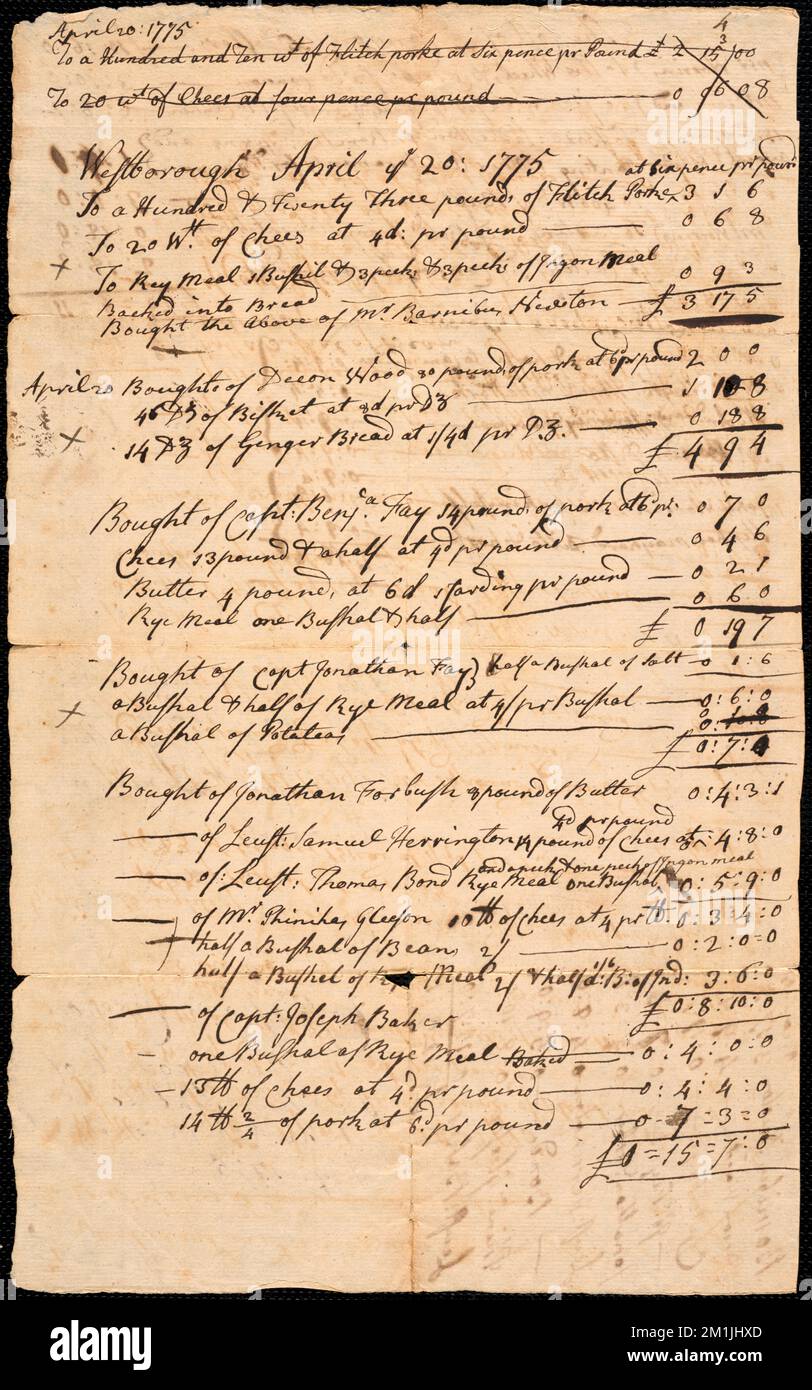 April 20: 1775
To a Hundred and Ten wt of Flitch porke at Six pence pr Pound £ 2 15 00
To 20 wt of Chees at four pence pr pound 0 06 08
Westborough April ye 20: 1775
at Six pence pr pound
To a Hundred & Twenty Three pounds of Flitch Porke 3 1 6
To 20 Wtt of Chees at 4d: pr pound 0 6 8
x To Rey Meal 1 Bushil & 3 pecks & 3 pecks of Ingon Meal
Backed into Bread 0 9 3
Bought the Above of Mr Barnibus Newton £ 3 17 5
April 20 Bought of Decon Wood 80 pounds of pork at 6d pr pound 2 0 0
46 DZ of Bisket at 8d pr DZ 1 10 8
x 14 DZ of Genger Bread at 1/4d pr DZ. 0 18 8
£ 4 9 4
Bought of Capt: Benja Fay 14 pounds of pork at 6d pr: 0 7 0
Chees 13 pound & a half at 4d pr pound 0 4 6
Butter 4 pounds at 6d starding pr pound 0 2 1
Rye Meal one Bushal & half 0 6 0
£ 0 19 7
Bought of Capt Jonathan Fay half a Bushal of Salt 0 1:6
x a Bushal & half of Rye Meal at 4/ pr Bushal 0:6:0
a Bushal of Potatoas
£ 0:7:
Bought of Jonathan Forbush 8 pound of Butter 0:4:3:1
4d pr pound
of Leuft: Samuel Herrington 14 pound of Chees at :4:8:0
and a peck & one peck of Ingon meal
of: Leuft: Thomas Bond Rye Meal one Bushal 0:5:9:0
of Mr Phinihas Gleson 10 tt of Chees at 4 pr tt: 0:3:4:0
half a Bushal of Beans 2/ 0:2:0=0
half a Bushel of Rye Meal 2/ & half a: B: of Ind: 1/6 3:6:0
£ 0:8:10:0
of Capt: Joseph Baker
one Bushal of Rye Meal Baked 0:4:0:0
13 tt of Chees at 4d pr pound 0:4:4:0
14 tt 2/4 of pork at 6d pr pound 0-7=3=0
£ 0=15=7:0
alamy
a
Image ID: 2M1JHXD
www.alamy.com